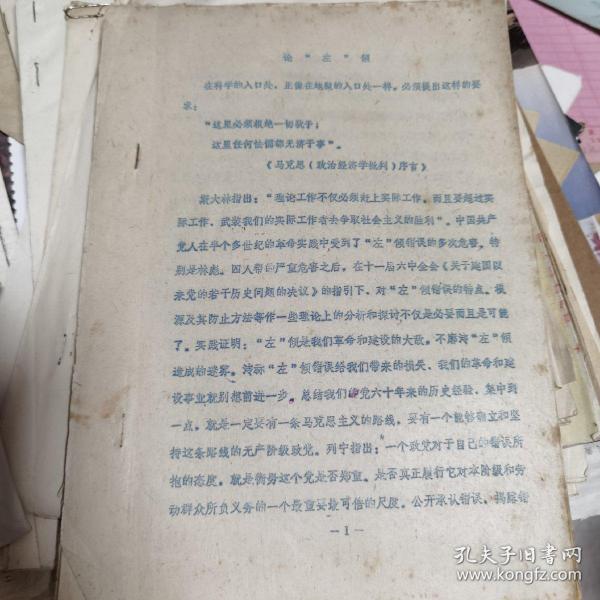 论“左”倾
在科学的入口处，正像在地狱的入口处一样，必须提出这样的要
求：
“这里必须根绝一切犹于；
这里任何怯懦都无济于事”。
《马克思（政治经济学批判）序言》
斯大林指出：“理论工作不仅必须赶上实际工作，而且要超过实
际工作，武装我们的实际工作者去争取社会主义的胜利”。中国共产
党人在半个多世纪的革命实践中受到了“左”倾错误的多次危害，特
别是林彪、四人帮的严重危害之后，在十一届六中全会《关于建国以
来党的若干历史问题的决议》的指引下，对“左”倾错误的特点、根
源及其防止方法等作一些理论上的分析和探讨不仅是必要而且是可能
了。实践证明：“左”倾是我们革命和建设的大敌。不廓清“左”倾
造成的迷雾，清称“左”倾错误给我们带来的损失，我们的革命和建
设事业就别想前进一步。总结我们的党六十年来的历史经验，集中到
一点，就是一定要有一条马克思主义的路线，要有一个能够确立和坚
持这条路线的无产阶级政党。列宁指出：“一个政党对于自己的错误所
抱的态度，就是衡势这个党是否郑重，是否真正履行它对本阶级和劳
动群众所负义务的一个最重要最可信的尺度。公开承认错误，揭露错
—1—
孔夫子旧书网
www.kongfz.com